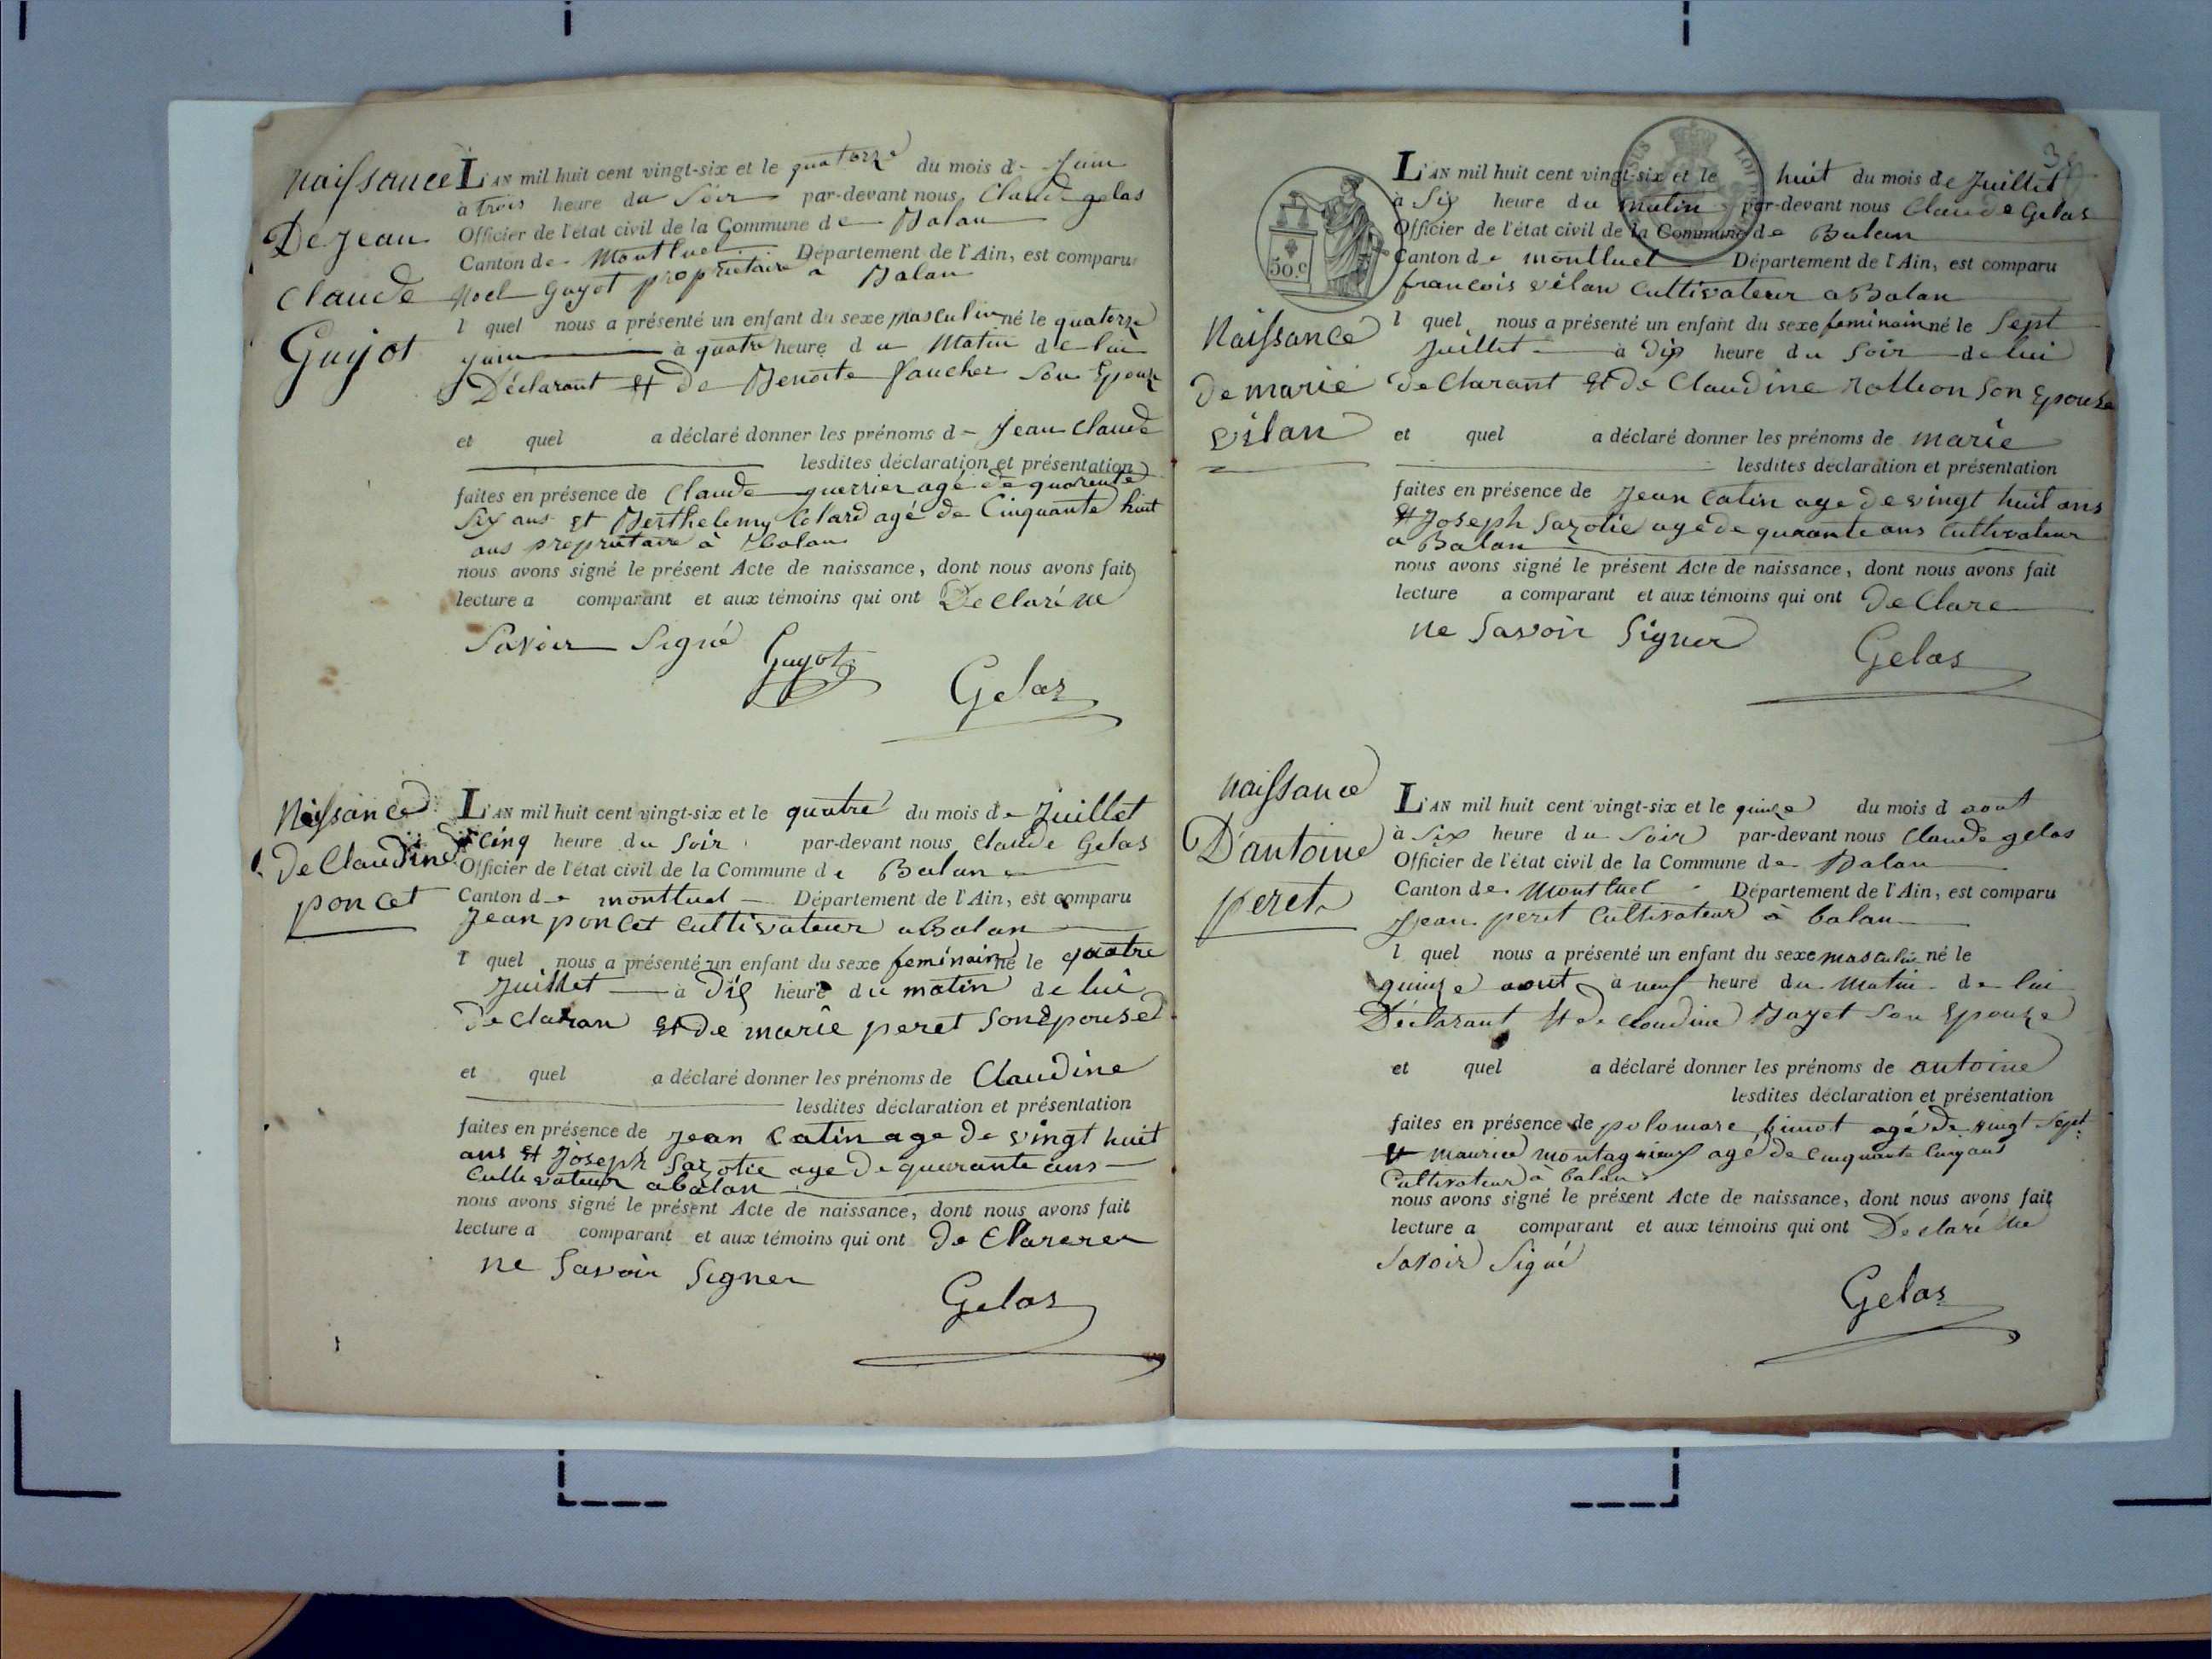 Naissance
De Jean
Claude
Guyot
L'AN mil huit cent vingt-six et le quatorze du mois de Juin
à trois heure du Soir par-devant nous Claude gelas
Officier de l'état civil de la Commune de Balan
Canton de Montluel Département de l'Ain, est comparu
Noel Guyot propriétaire a Balan
l quel nous a présenté un enfant du sexe masculin né le quatorze
juin à quatre heure du Matin de lui
Déclarant et De Benoite faucher Son Epouze
et quel a déclaré donner les prénoms d Jean Claude
lesdites déclaration et présentation
faites en présence de Claude guerrier agé de quarente
Six ans et Berthelemy Colard agé de Cinquante huit
ans propriétaire à Balan
nous avons signé le présent Acte de naissance, dont nous avons fait
lecture a comparant et aux témoins qui ont Declaré ne
Savoir Signé Guyot
Gelas
Naissance
De Claudine
poncet
L'AN mil huit cent vingt-six et le quatre du mois de Juillet
à Cinq heure du Soir par-devant nous Claude Gelas
Officier de l'état civil de la Commune de Balan
Canton de montluel Département de l'Ain, est comparu
Jean poncet Cultivateur a Balan
l quel nous a présenté un enfant du sexe feminain né le quatre
Juillet à Dix heure du matin de lui
De claran et de marie peret Son Epouse
et quel a déclaré donner les prénoms de Claudine
lesdites déclaration et présentation
faites en présence de Jean Catin age de vingt huit
ans et Joseph Sazotie age De quarante ans
Cultivateur a balan
nous avons signé le présent Acte de naissance, dont nous avons fait
lecture a comparant et aux témoins qui ont de Clarerer
ne Savoir Signer
Gelas
50.c
Naissance
De marie
vilan
L'AN mil huit cent vingt-six et le huit du mois de Juillet
à Six heure du matin par-devant nous Claude Gelas
Officier de l'état civil de la Commune de Balan
Canton de montluel Département de l'Ain, est comparu
francois vilan Cultivateur a Balan
l quel nous a présenté un enfant du sexe feminain né le Sept
Juillet à Dix heure du Soir de lui
De Clarant et de Claudine Son Epouse
et quel a déclaré donner les prénoms de marie
lesdites déclaration et présentation
faites en présence de Jean Catin age de vingt huit ans
et Joseph Sazotie age de quarante ans Cultivateur
a Balan
nous avons signé le présent Acte de naissance, dont nous avons fait
lecture a comparant et aux témoins qui ont de Clare
ne Savoir Signer
Gelas
Naissance
D'antoine
peret
L'AN mil huit cent vingt-six et le quinze du mois d aout
à Six heure du Soir par-devant nous Claude gelas
Officier de l'état civil de la Commune de Balan
Canton de Montluel Département de l'Ain, est comparu
Jean peret Cultivateur à balan
l quel nous a présenté un enfant du sexe masculin né le
quinze aout à neuf heure du Matin de lui
Déclarant et de Claudine Bayet Son Epouze
et quel a déclaré donner les prénoms de antoine
lesdites déclaration et présentation
faites en présence de agé De vingt Sept
et maurice montagnieux agé de Cinquante Cinq ans
Cultivateur à balan
nous avons signé le présent Acte de naissance, dont nous avons fait
lecture a comparant et aux témoins qui ont Declaré Ne
Savoir Signé
Gelas